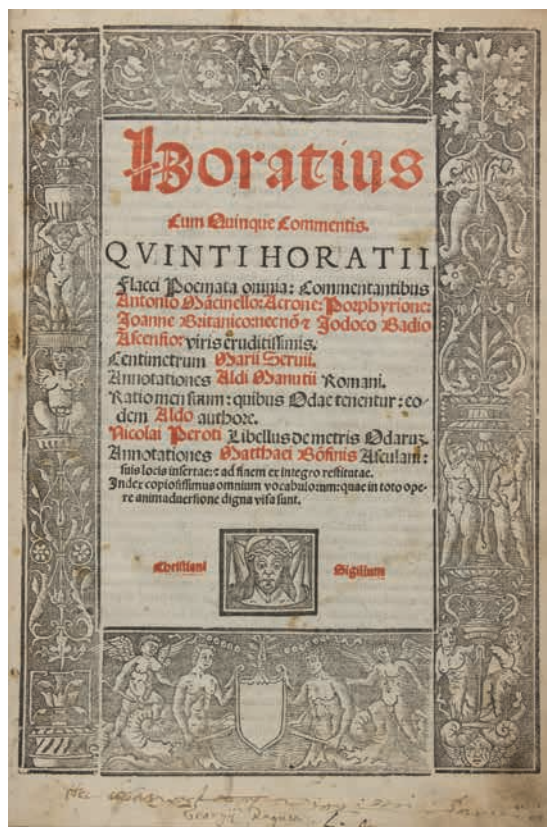 Horatius
Cum Quinque Commentis.
QVINTI HORATII
Flacci Poemata omnia: Commentantibus
Antonio Mācinello: Acrone: Porphyrione:
Joanne Britanico: necnō ⁊ Jodoco Badio
Ascensio: viris eruditissimis.
Centimetrum Marii Seruii.
Annotationes Aldi Manutii Romani.
Ratio mensuum: quibus Odae tenentur: eo-
dem Aldo authore.
Nicolai Peroti Libellus de metris Odaruꝫ.
Annotationes Matthaei Bōfinis Asculani:
suis locis insertae: ⁊ ad finem ex integro restitutae.
Index copiosissimus omnium vocabulorum: quae in toto ope-
re animaduersione digna visa sunt.
Christiani Sigillum